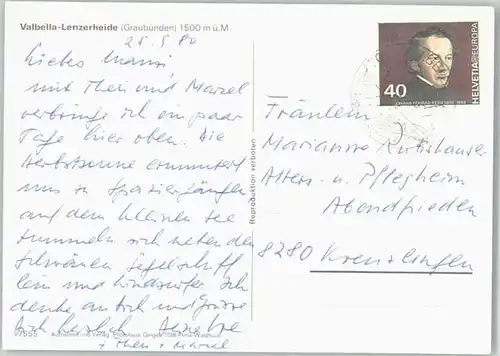 Valbella-Lenzerheide (Graubünden) 1500 m ü.M.
25.9.80
Liebes Mausi,
mit Theri und Marcel
verbringe ich ein paar
Tage hier oben. Die
Herbstsonne ermuntert
uns zu Spaziergängen
auf dem kleinen See
tummeln sich neben den
Schwänen Segelschiff
lein und Windsurfer. Ich
denke an Dich und Grüsse
Dich herzlich
+ Theri + Marcel
7555
Reproduktion verboten
40
HELVETIA EUROPA
Fräulein
Marianne Rutishauser
Alters- u. Pflegheim
Abendfrieden
8280 Kreuzlingen